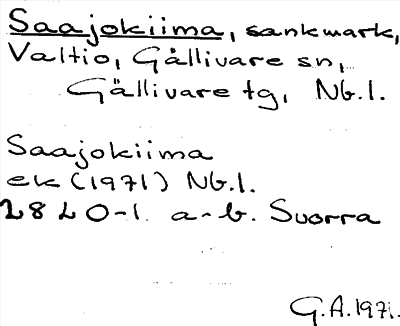 Saajokiima, sankmark,
Valtio, Gällivare sn,
Gällivare tg, Nb.l.
Saajokiima
ek (1971) Nb.l.
28 L 0-1. a-b. Suorra
G.A. 1971.